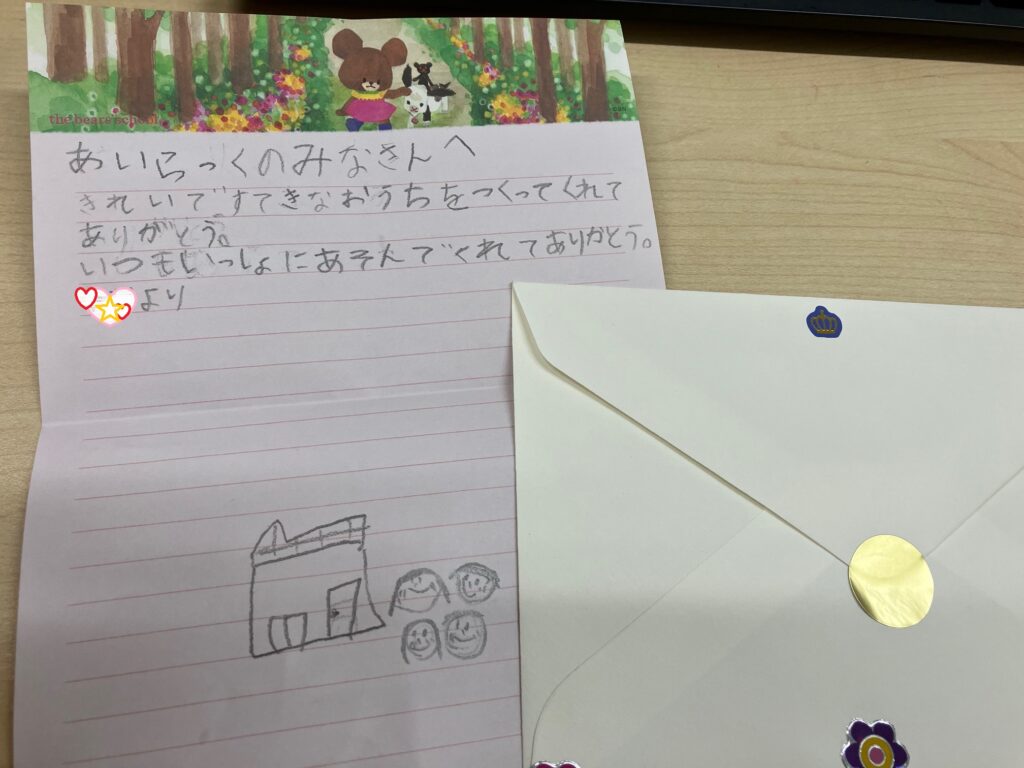 the bears' school
あいらっくのみなさんへ
きれいですてきなおうちをつくってくれて
ありがとう。
いつもいっしょにあそんでくれてありがとう。
より